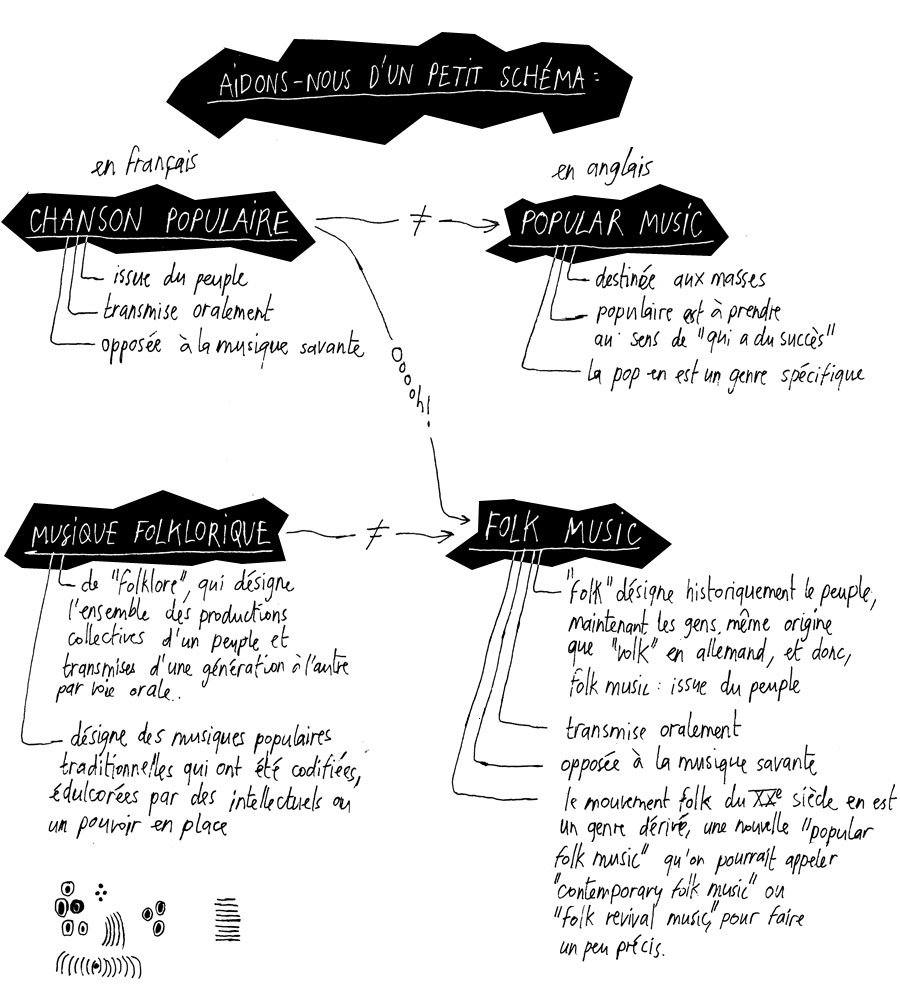 AIDONS-NOUS D'UN PETIT SCHÉMA :
en français
CHANSON POPULAIRE
issue du peuple
transmise oralement
opposée à la musique savante
≠
en anglais
POPULAR MUSIC
destinée aux masses
populaire est à prendre
au sens de "qui a du succès"
la pop en est un genre spécifique
Oooh!
MUSIQUE FOLKLORIQUE
de "folklore", qui désigne
l'ensemble des productions
collectives d'un peuple et
transmises d'une génération à l'autre
par voie orale..
désigne des musiques populaires
traditionnelles qui ont été codifiées,
édulcorées par des intellectuels ou
un pouvoir en place
≠
FOLK MUSIC
"folk" désigne historiquement le peuple,
maintenant les gens, même origine
que "volk" en allemand, et donc,
folk music : issue du peuple
transmise oralement
opposée à la musique savante
le mouvement folk du XXe siècle en est
un genre dérivé, une nouvelle "popular
folk music" qu'on pourrait appeler
"contemporary folk music" ou
"folk revival music", pour faire
un peu précis.